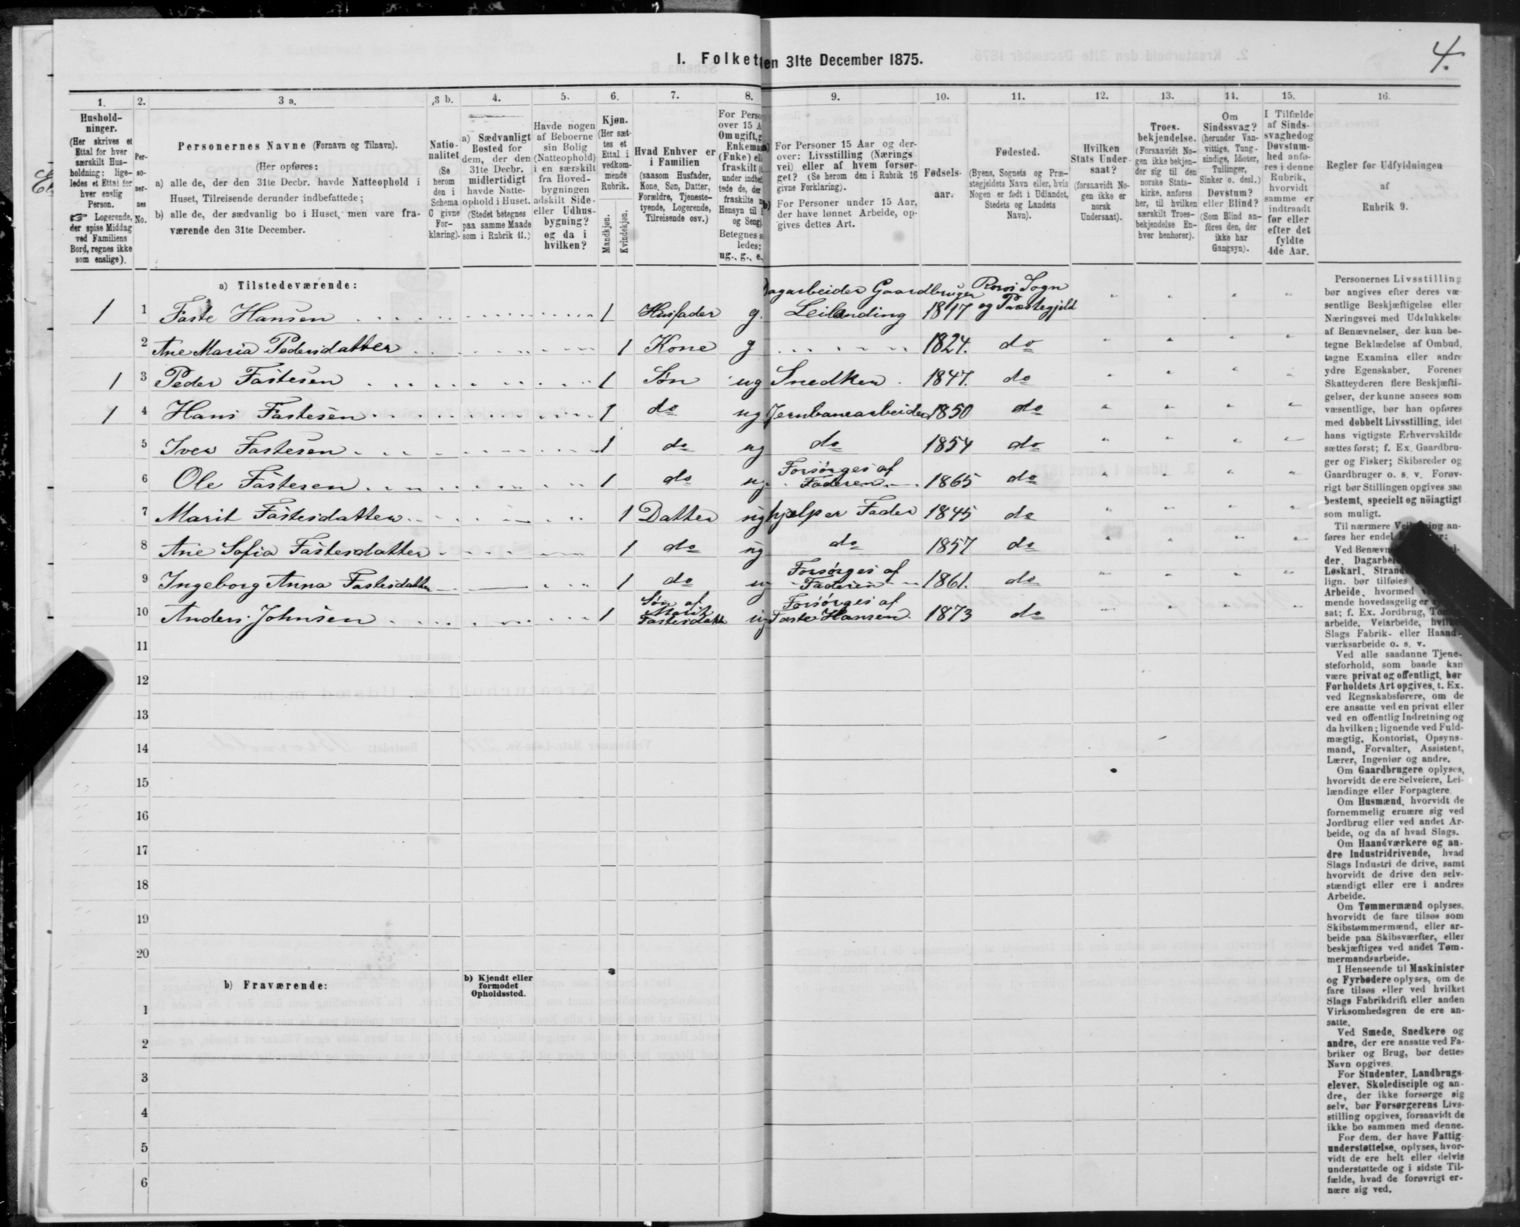 I. Folket
en 31te December 1875.
4.
1.
Hushold-
ninger.
(Her skrives et
Ettal for hver
særskilt Hus-
holdning; lige-
ledes et Ettal for
hver enslig
Person.
☞ Logerende,
der spise Middag
ved Familiens
Bord, regnes ikke
som enslige).
2.
Per-
so-
ner-
nes
No.
3 a.
Personernes Navne (Fornavn og Tilnavn).
(Her opføres:
a) alle de, der den 31te Decbr. havde Natteophold i
Huset, Tilreisende derunder indbefattede;
b) alle de, der sædvanlig bo i Huset, men vare fra-
værende den 31te December.
3 b.
Natio-
nalitet
(Se
herom
den i
Schema
C givne
For-
klaring).
4.
a) Sædvanligt
Bosted for
dem, der den
31te Decbr.
midlertidigt
havde Natte-
ophold i Huset.
(Stedet betegnes
paa samme Maade
som i Rubrik 11.)
5.
Havde nogen
af Beboerne
sin Bolig
(Natteophold)
i en særskilt
fra Hoved-
bygningen
adskilt Side-
eller Udhus-
bygning?
og da i
hvilken?
6.
Kjøn.
(Her sæt-
tes et
Ettal i
vedkom-
mende
Rubrik.
Mandkjøn.
Kvindekjøn.
7.
Hvad Enhver er
i Familien
(saasom Husfader,
Kone, Søn, Datter,
Forældre, Tjeneste-
tyende, Logerende,
Tilreisende osv.)
8.
For Perso
over 15 A
Om ugift, g
Enkeman
(Fuke) ell
fraskilt (
under indbef
tede de, der
fraskilte
Hensyn til
og Seng).
Betegnes s
ledes:
ug., g., e.
9.
For Personer 15 Aar og der-
over: Livsstilling (Nærings
vei) eller af hvem forsør-
get? (Se herom den i Rubrik 16
givne Forklaring).
For Personer under 15 Aar,
der have lønnet Arbeide, op-
gives dettes Art.
10.
Fødsels-
aar.
11.
Fødested.
(Byens, Sognets og Præ-
stegjeldets Navn eller, hvis
Nogen er født i Udlandet,
Stedets og Landets
Navn).
12.
Hvilken
Stats Under-
saat?
(forsaavidt No-
gen ikke er
norsk
Undersaat).
13.
Troes-
bekjendelse.
(Forsaavidt No-
gen ikke bekjen-
der sig til den
norske Stats-
kirke, anføres
her, til hvilken
særskilt Troes-
bekjendelse En-
hver henhører).
14.
Om
Sindssvag?
(herunder Van-
vittige, Tung-
sindige, Idioter,
Tullinger,
Sinker o. desl.)
Døvstum?
eller Blind?
(Som Blind an-
føres den, der
ikke har
Gangsyn).
15.
I Tilfælde
af Sinds-
svaghed og
Døvstum-
hed anfø-
res i denne
Rubrik,
hvorvidt
samme er
indtraadt
før eller
efter det
fyldte
4de Aar.
16.
Regler før Udfyldningen
af
Rubrik 9.
a) Tilstedeværende:
1 1 Faste Hansen 1 Husfader g. Dagarbeider Gaardbruger Leilending 1817 Roros Sogn og Præstegjeld
2 Ane Maria Pedersdatter 1 Kone g 1824. do
1 3 Peder Fastesen 1 Søn ug Snedker 1847. do
1 4 Hans Fastesen 1 do ug Jernbanearbeider 1850 do
5 Iver Fastesen 1 do ug do 1854 do
6 Ole Fastesen 1 do ug Forsørges af Faderen 1865 do
7 Marit Fastesdatter 1 Datter ug hjælper Fader 1845 do
8 Ane Sofia Fastesdatter 1 do ug do 1857 do
9 Ingeborg Anna Fastesdatter 1 do ug Forsørges af Faderen 1861. do
10 Anders Johnsen 1 Søn af Marit Fastesdatt. ug Forsørges af Faste Hansen 1873 do
11
12
13
14
15
16
17
18
19
20
b) Fraværende:
b) Kjendt eller
formodet
Opholdssted.
1
2
3
4
5
6
Personernes Livsstilling
bør angives efter deres væ-
sentlige Beskjæftigelse eller
Næringsvei med Udelukkelse
af Benævnelser, der kun be-
tegne Beklædelse af Ombud,
tagne Examina eller andre
ydre Egenskaber. Forener
Skatteyderen flere Beskjæfti-
gelser, der kunne ansees som
væsentlige, bør han opføres
med dobbelt Livsstilling, idet
hans vigtigste Erhvervskilde
sættes først; f. Ex. Gaardbru-
ger og Fisker; Skibsreder og
Gaardbruger o. s. v. Forøv-
rigt bør Stillingen opgives saa
bestemt, specielt og nøiagtigt
som muligt.
Til nærmere Vei ing an-
føres her endel
Ved Benævn
der, Dagarbei
Løskarl, Strand
lign. bør tilføies
Arbeide, hvormed
mende hovedsagelig er
sat; f. Ex. Jordbrug,
arbeide, Veiarbeide, hvilk
Slags Fabrik- eller Haand-
værksarbeide o. s. v.
Ved alle saadanne Tjene-
steforhold, som baade kan
være privat og offentligt, bør
Forholdets Art opgives, t. Ex.
ved Regnskabsførere, om de
ere ansatte ved en privat eller
ved en offentlig Indretning og
da hvilken; lignende ved Fuld-
mægtig, Kontorist, Opsyns-
mand, Forvalter, Assistent,
Lærer, Ingeniør og andre.
Om Gaardbrugere oplyses,
hvorvidt de ere Selveiere, Lei-
lændinge eller Forpagtere.
Om Husmænd, hvorvidt de
fornemmelig ernære sig ved
Jordbrug eller ved andet Ar-
beide, og da af hvad Slags.
Om Haandværkere og an-
dre Industridrivende, hvad
Slags Industri de drive, samt
hvorvidt de drive den selv-
stændigt eller ere i andres
Arbeide.
Om Tømmermænd oplyses,
hvorvidt de fare tilsøs som
Skibstømmermænd, eller ar-
beide paa Skibsværfter, eller
beskjæftiges ved andet Tøm-
mermandsarbeide.
I Henseende til Maskinister
og Fyrbødere oplyses, om de
fare tilsøs eller ved hvilket
Slags Fabrikdrift eller anden
Virksomhedsgren de ere an-
satte.
Ved Smede, Snedkere og
andre, der ere ansatte ved Fa-
briker og Brug, bør dettes
Navn opgives.
For Studenter, Landbrugs-
elever, Skoledisciple og an-
dre, der ikke forsørge sig
selv, bør Forsørgerens Livs-
stilling opgives, forsaavidt de
ikke bo sammen med denne.
For dem, der have Fattig-
understøttelse, oplyses, hvor-
vidt de ere helt eller delvis
understøttede og i sidste Til-
fælde, hvad de forøvrigt er-
nære sig ved.